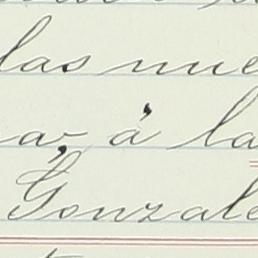 las nue
a, á la
Gonzale